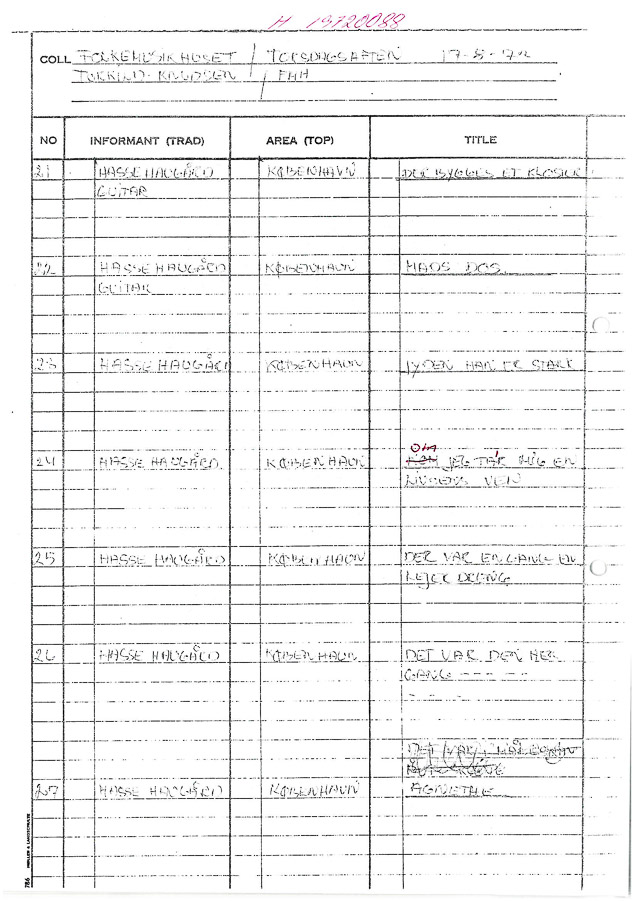 M 19720088
COLL FOLKEMUSIKHUSET / TORSDAGSAFTEN 17-8-72
TORKILD KNUDSEN / FHH
NO INFORMANT (TRAD) AREA (TOP) TITLE
21 HASSE HAUGÅRD KØBENHAVN DER BYGGES ET KLOSTER
GUITAR
22 HASSE HAUGÅRD KØBENHAVN MADS DOS
GUITAR
23 HASSE HAUGÅRD KØBENHAVN JYDEN HAN ER STÆRK
OM
24 HASSE HAUGÅRD KØBENHAVN JEG TAR MIG EN
VEN
25 HASSE HAUGÅRD KØBENHAVN DER VAR EN GANG EN
DRENG
26 HASSE HAUGÅRD KØBENHAVN DET VAR DEN HER
GANG - - - -
- - - -
DET VAR
27 HASSE HAUGÅRD KØBENHAVN AGNETHE
786